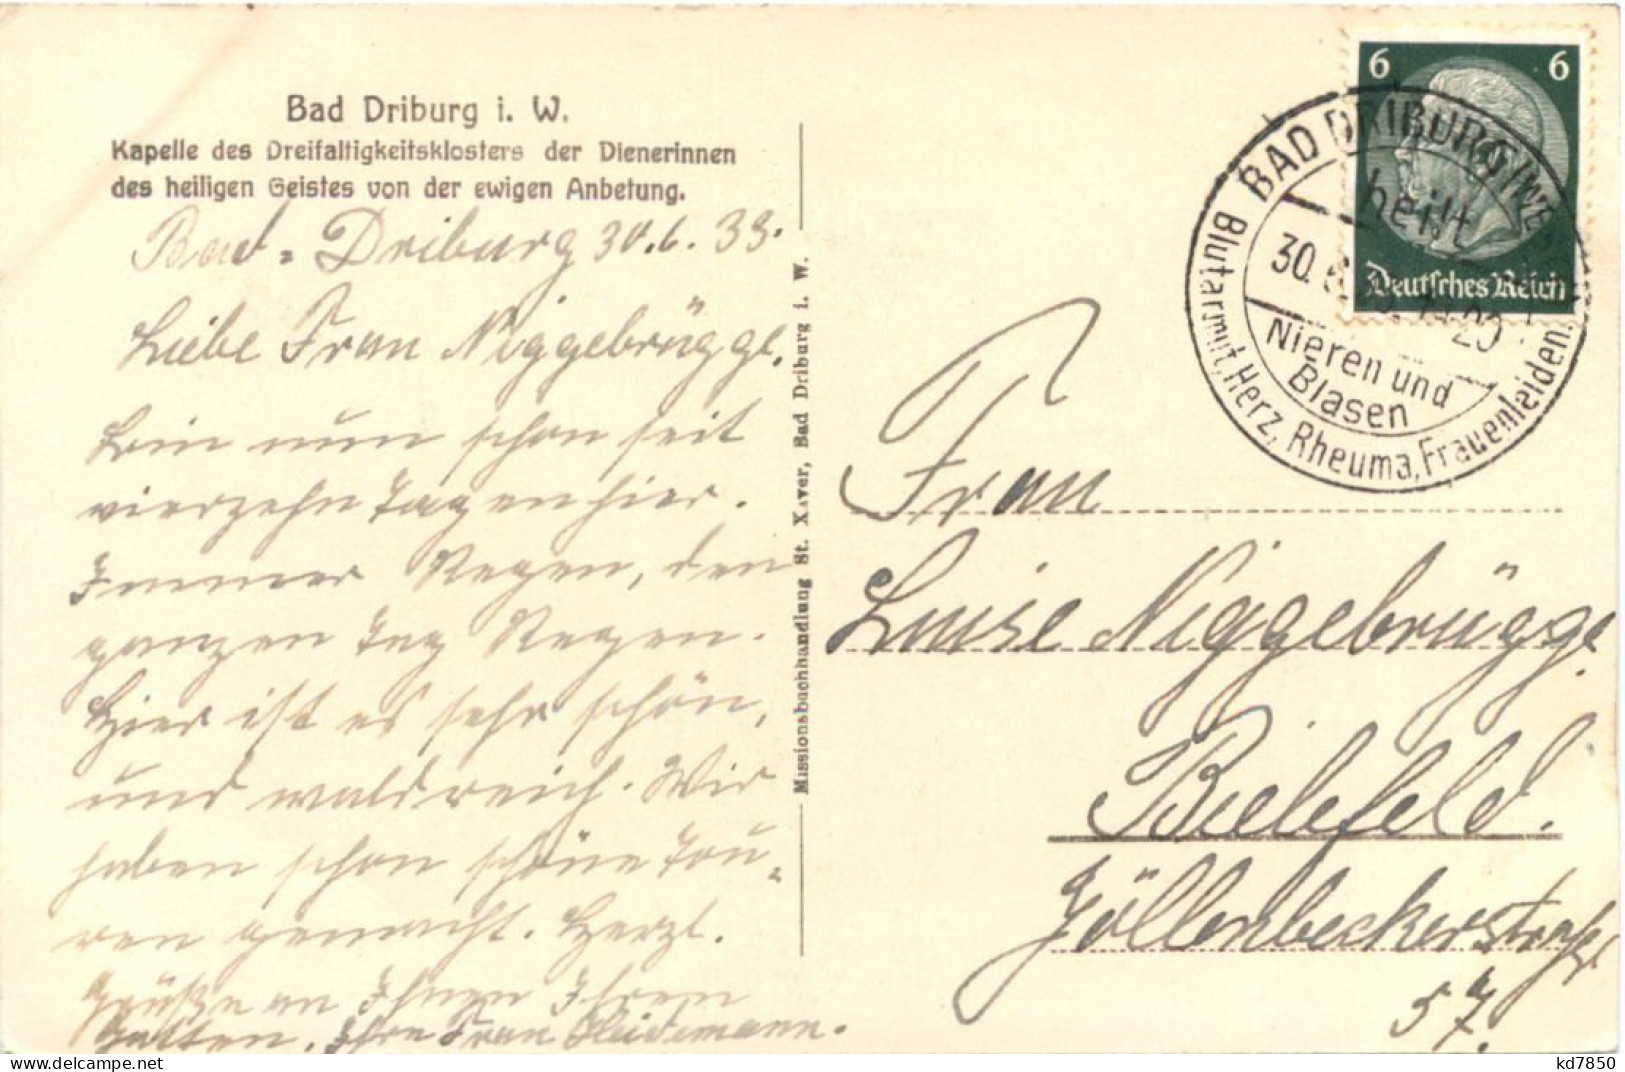 Bad Driburg i. W.
Kapelle des Dreifaltigkeitsklosters der Dienerinnen
des heiligen Geistes von der ewigen Anbetung.
Bad-Driburg 30.6.33.
Liebe Frau Niggebrügge.
bin nun schon seit
vierzehn Tagen hier.
Immer Regen, den
ganzen Tag Regen.
Hier ist es sehr schön,
und waldreich. Wir
haben schon schöne Tou-
ren gemacht. Herzl.
Grüße an Ihnen Ihrem
Gatten. Ihre Frau Heidemann.
Missionsbuchhandlung St. Xaver, Bad Driburg i. W.
6 6
Deutsches Reich
BAD DRIBURG (WE
heilt
30. 6. 20
Nieren und
Blasen
Blutarmut, Herz, Rheuma, Frauenleiden.
Frau
Luise Niggebrügge
Bielefeld.
Jöllenbeckerstraße
57.
delcampe.net
kd7850